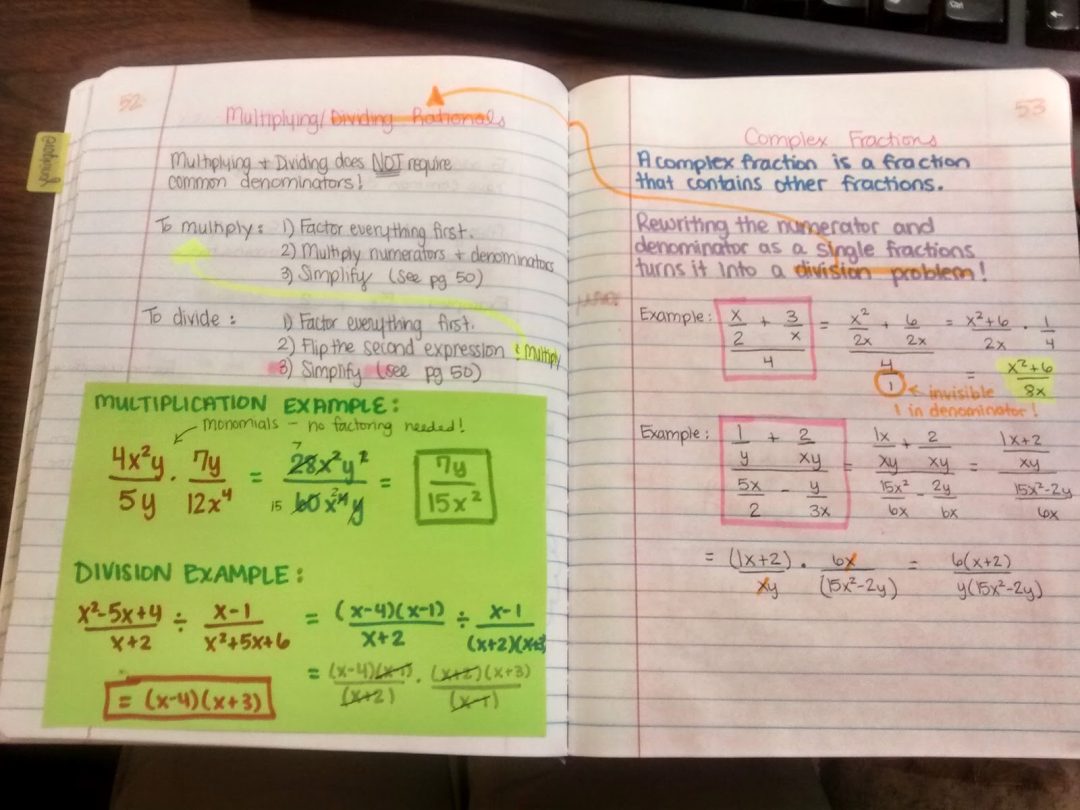 52
Multiplying/Dividing Rationals
Multiplying + Dividing does NOT require
common denominators!
To multiply: 1) Factor everything first.
2) Multiply numerators + denominators
3) Simplify (see pg 50)
To divide: 1) Factor everything first.
2) Flip the second expression & multiply
3) Simplify (see pg 50)
MULTIPLICATION EXAMPLE:
monomials – no factoring needed!
4x²y/5y · 7y/12x⁴ = 7 28x²y²/15 60x⁴y 2 = 7y/15x²
DIVISION EXAMPLE:
x²-5x+4/x+2 ÷ x-1/x²+5x+6 = (x-4)(x-1)/x+2 ÷ x-1/(x+2)(x+3)
= (x-4)(x-1)/(x+2) · (x+2)(x+3)/(x-1)
= (x-4)(x+3)
53
Complex Fractions
A complex fraction is a fraction
that contains other fractions.
Rewriting the numerator and
denominator as a single fractions
turns it into a division problem!
Example: (x/2 + 3/x)/4 = (x²/2x + 6/2x)/(4/1) = x²+6/2x · 1/4
= x²+6/8x
← invisible
1 in denominator!
Example: (1/y + 2/xy)/(5x/2 - y/3x) = (1x/xy + 2/xy)/(15x²/6x - 2y/6x) = (1x+2/xy)/(15x²-2y/6x)
= (1x+2)/xy · 6x/(15x²-2y) = 6(x+2)/y(15x²-2y)
Ctrl